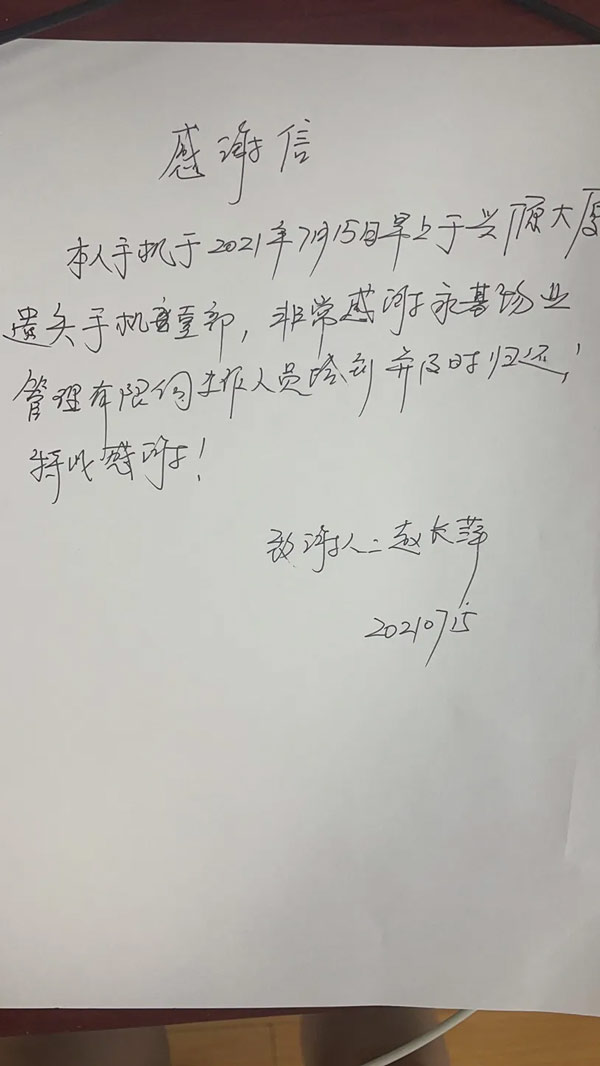 感谢信
本人手机于2021年7月15日早上于兴原大厦
遗失手机壹部，非常感谢永基物业
管理有限公司工作人员拾到并及时归还！
特此感谢！
致谢人：赵长萍
20210715